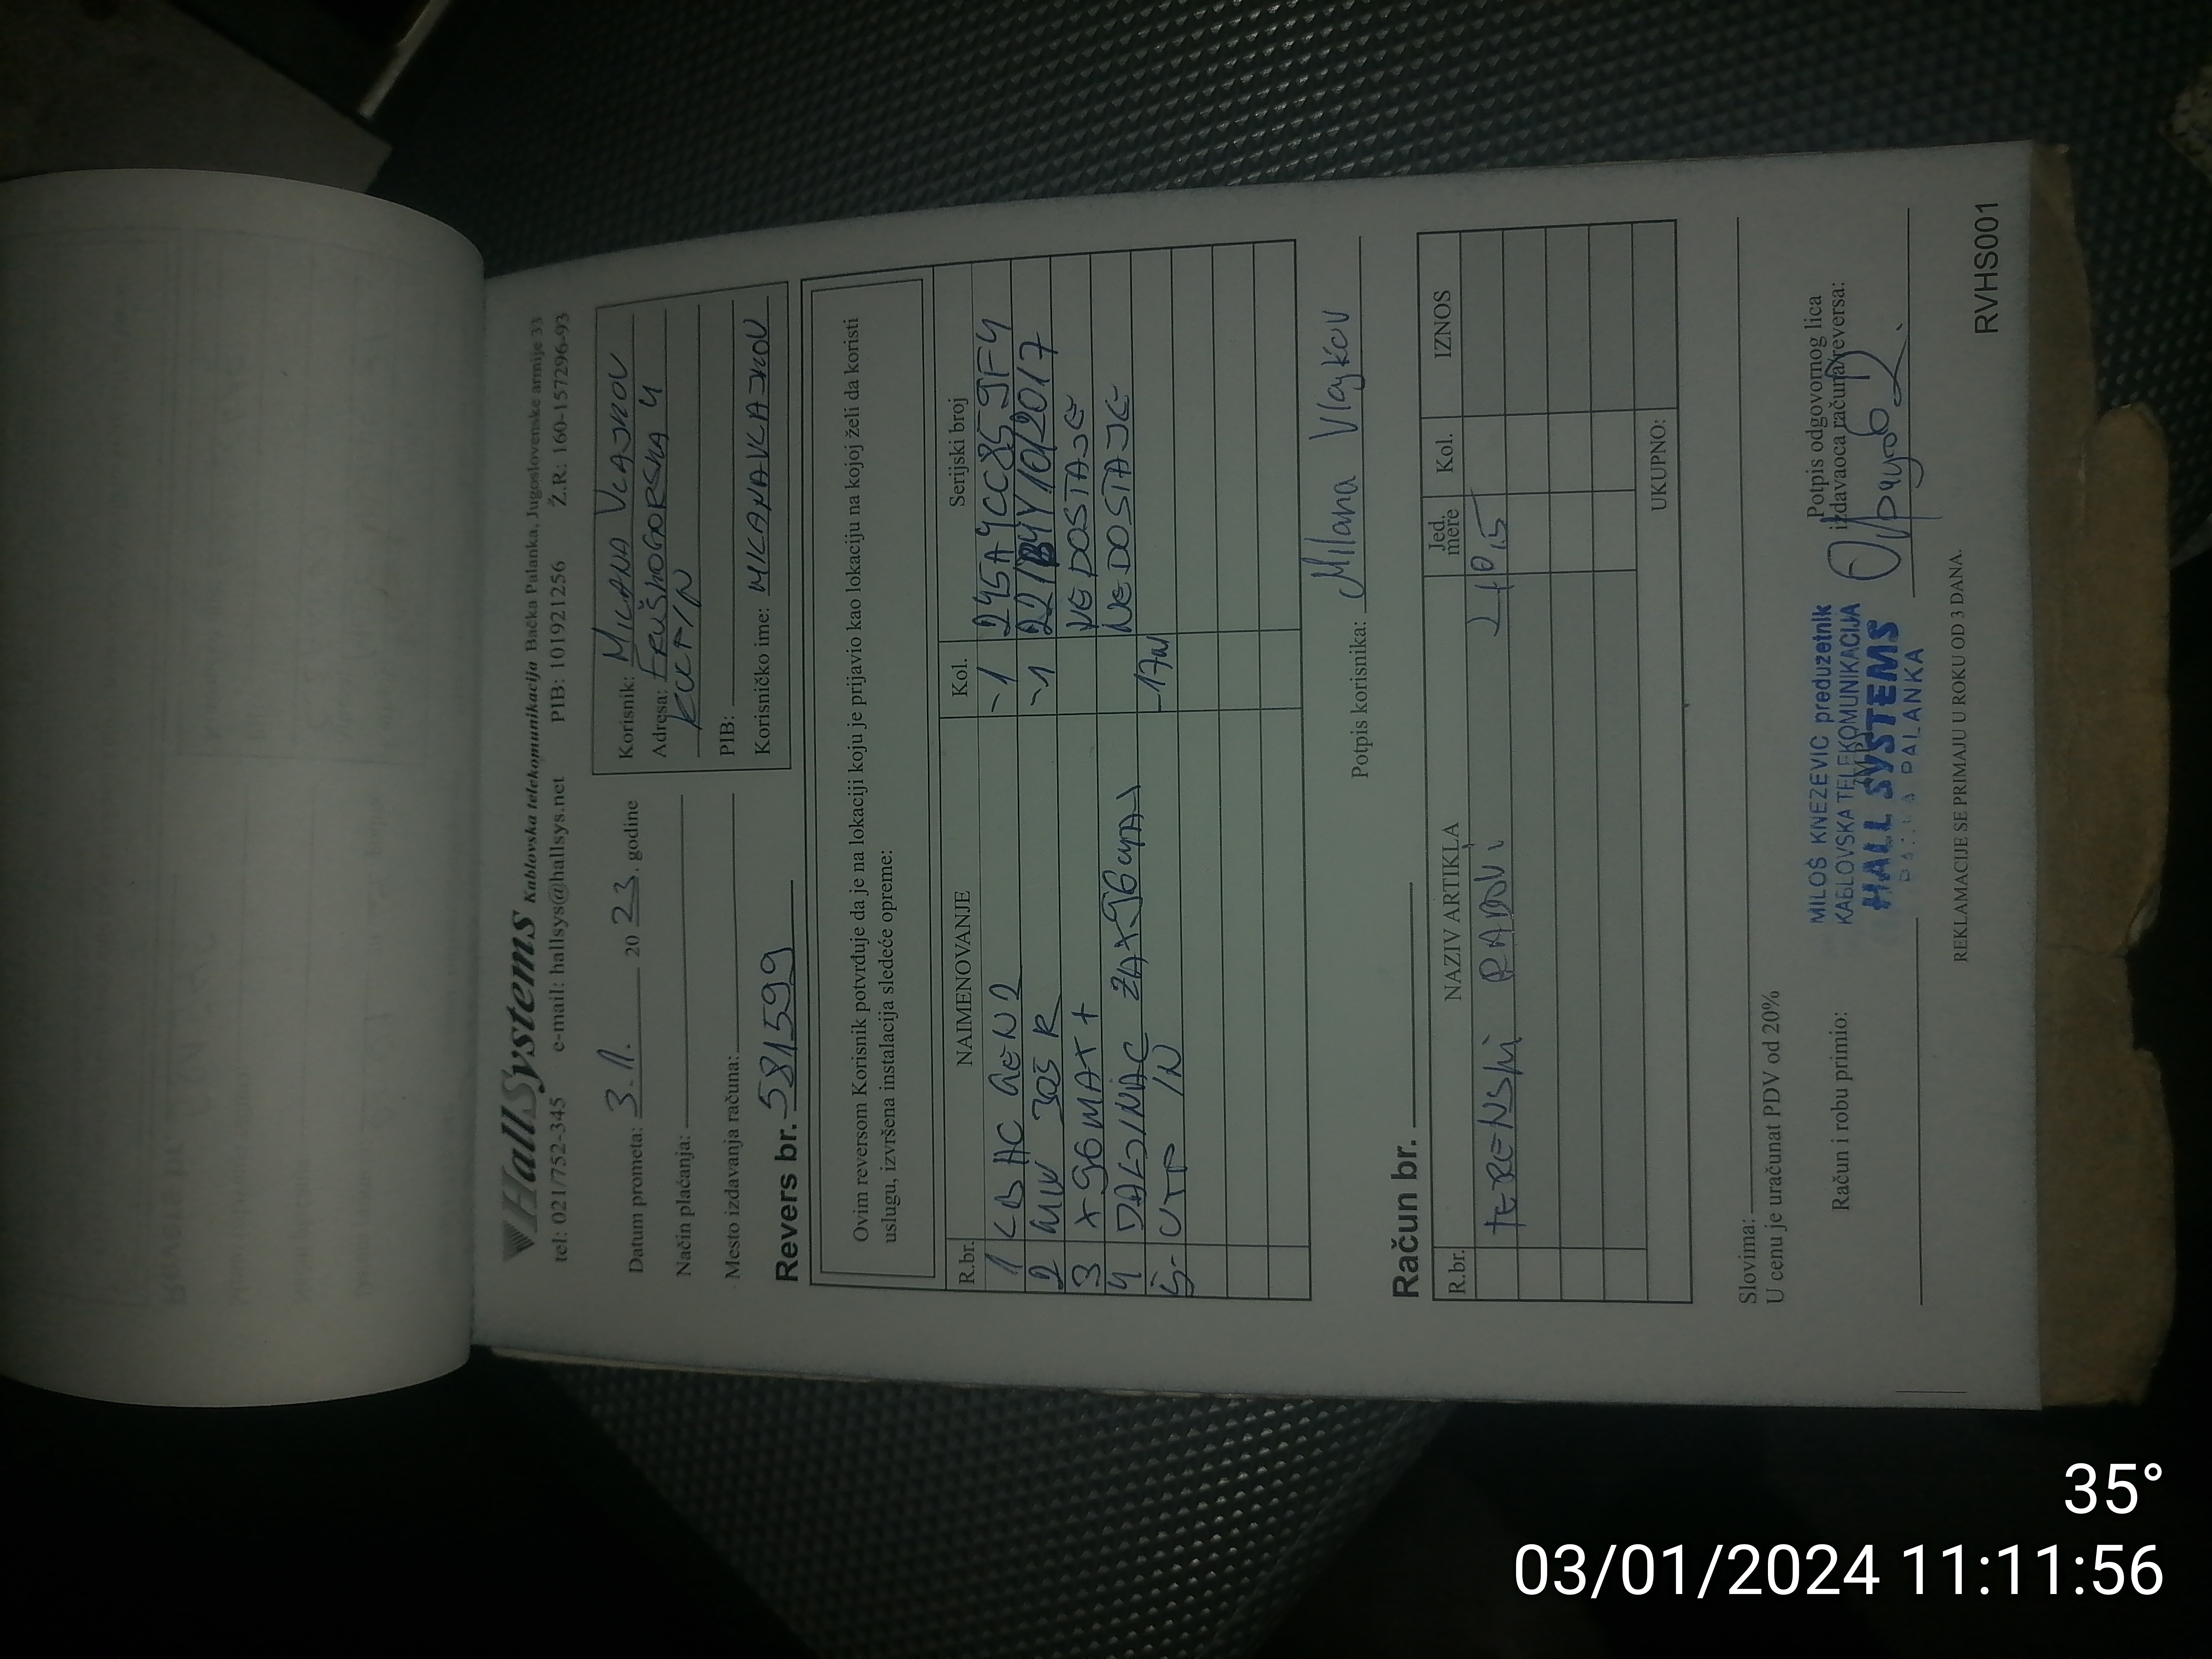 HallSystems Kablovska telekomunikacija Bačka Palanka, Jugoslovenske armije 33
tel: 021/752-345 e-mail: hallsys@hallsys.net PIB: 101921256 Ž.R: 160-157296-93
Datum prometa: 3.1. 2023. godine
Način plaćanja:
Mesto izdavanja računa:
Revers br. 581599
Korisnik: MILANA VLAJKOV
Adresa: FRUŠKOGORSKA 4
KULPIN
PIB:
Korisničko ime: MILANAVLAJKOV
Ovim reversom Korisnik potvrđuje da je na lokaciji koju je prijavio kao lokaciju na kojoj želi da koristi
uslugu, izvršena instalacija sledeće opreme:
R.br. NAIMENOVANJE Kol. Serijski broj
1 LB AC GEN2 -1 245A4CC859JF4
2 MIN 305 R -1
3 X96MAX+ NEDOSTAJE
4 DALJINAC ZA X96 NEDOSTAJE
5- UTP IN -17m
Potpis korisnika: Milana Vlajkov
Račun br.
R.br. NAZIV ARTIKLA Jed. mere Kol. IZNOS
TERENSKI RADOVI
UKUPNO:
Slovima:
U cenu je uračunat PDV od 20%
Račun i robu primio:
MILOŠ KNEZEVIC preduzetnik
KABLOVSKA TELEKOMUNIKACIJA
HALL SYSTEMS
PALANKA
Potpis odgovornog lica
izdavaoca računa/reversa:
REKLAMACIJE SE PRIMAJU U ROKU OD 3 DANA.
RVHS001
35°
03/01/2024 11:11:56